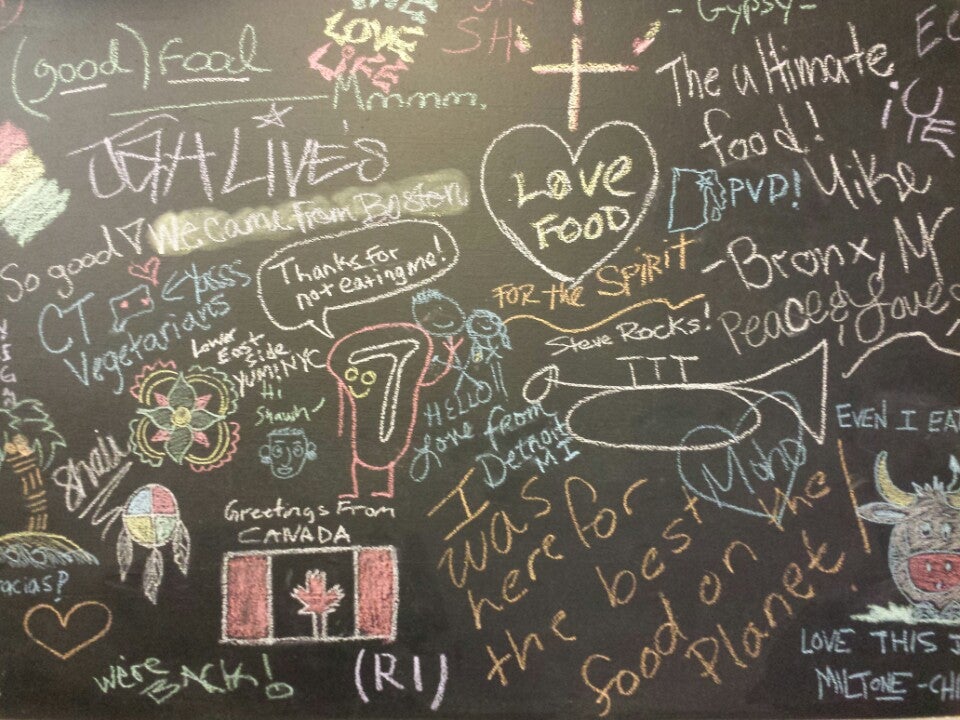 LOVE
LIFE
SH
-Gypsy-
(good) Food
Mmmm.
The ultimate
food!
JAH LIVE'S
LOVE
FOOD
PVD!
Mike
We came from Boston
So good
Thanks for
not eating me!
FOR the SPIRIT
-Bronx, NY
Peace & Love
CT
Vegetarians
Lower
East
Side
YUM! NYC
Hi
Shawn
Steve Rocks!
HELLO!!
Love from
Detroit
MI
EVEN I EAT
I
was
here for
the best
food on the
Planet!
Greetings From
CANADA
we're
BACK!
(RI)
LOVE THIS
MILTONE-